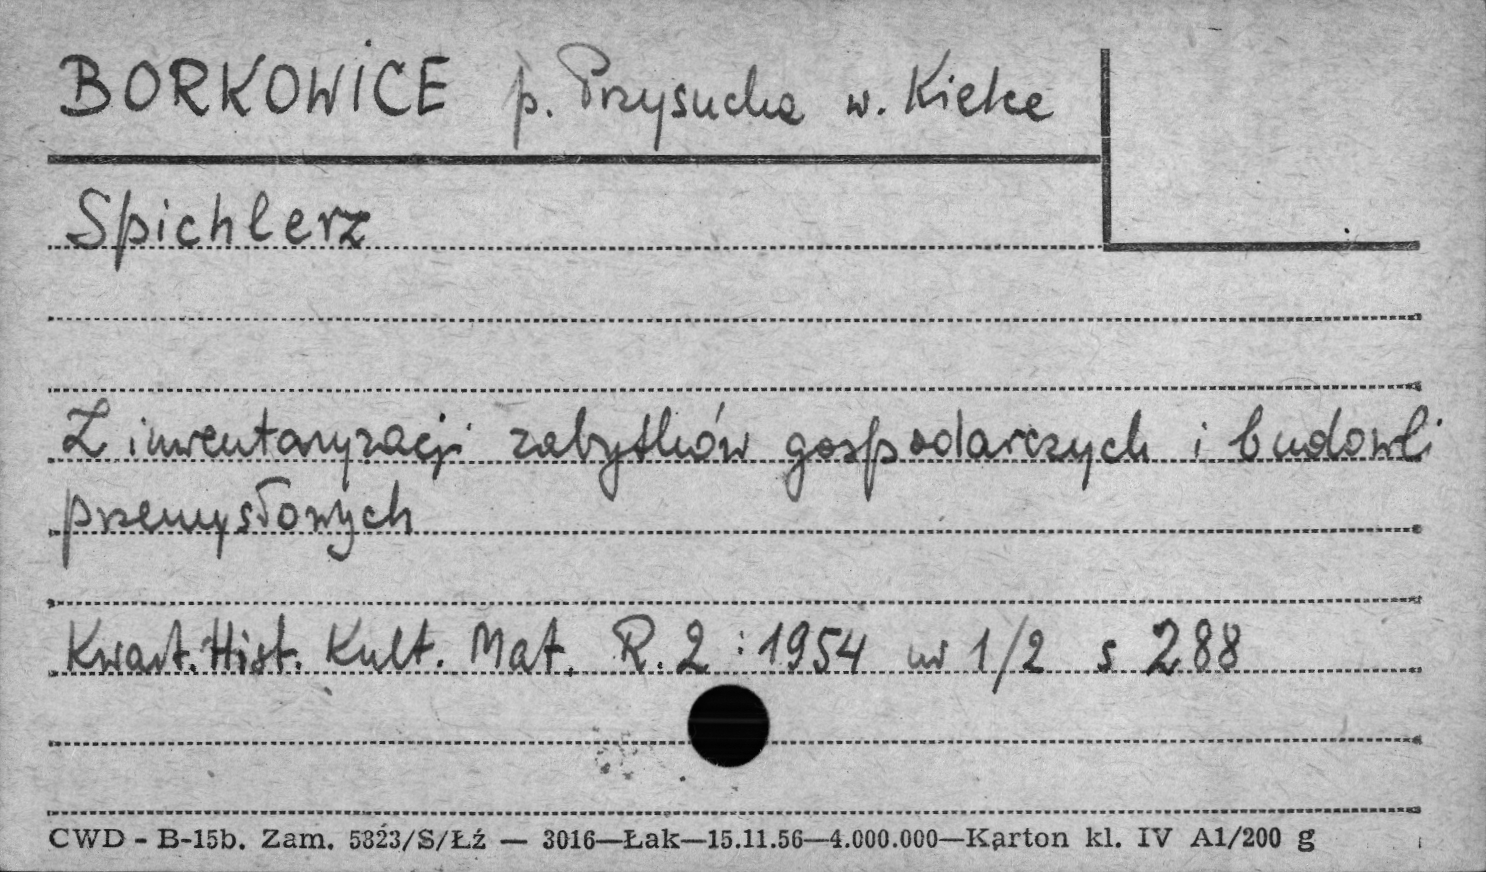 BORKOWICE p. Przysucha w. Kielce
Spichlerz
Z inwentaryzacji zabytków gospodarczych i budowli
przemysłowych
Kwart. Hist. Kult. Mat. R. 2 : 1954 nr 1/2 s 288
CWD - B-15b. Zam. 5323/S/Łź — 3016—Łak—15.11.56—4.000.000—Karton kl. IV A1/200 g